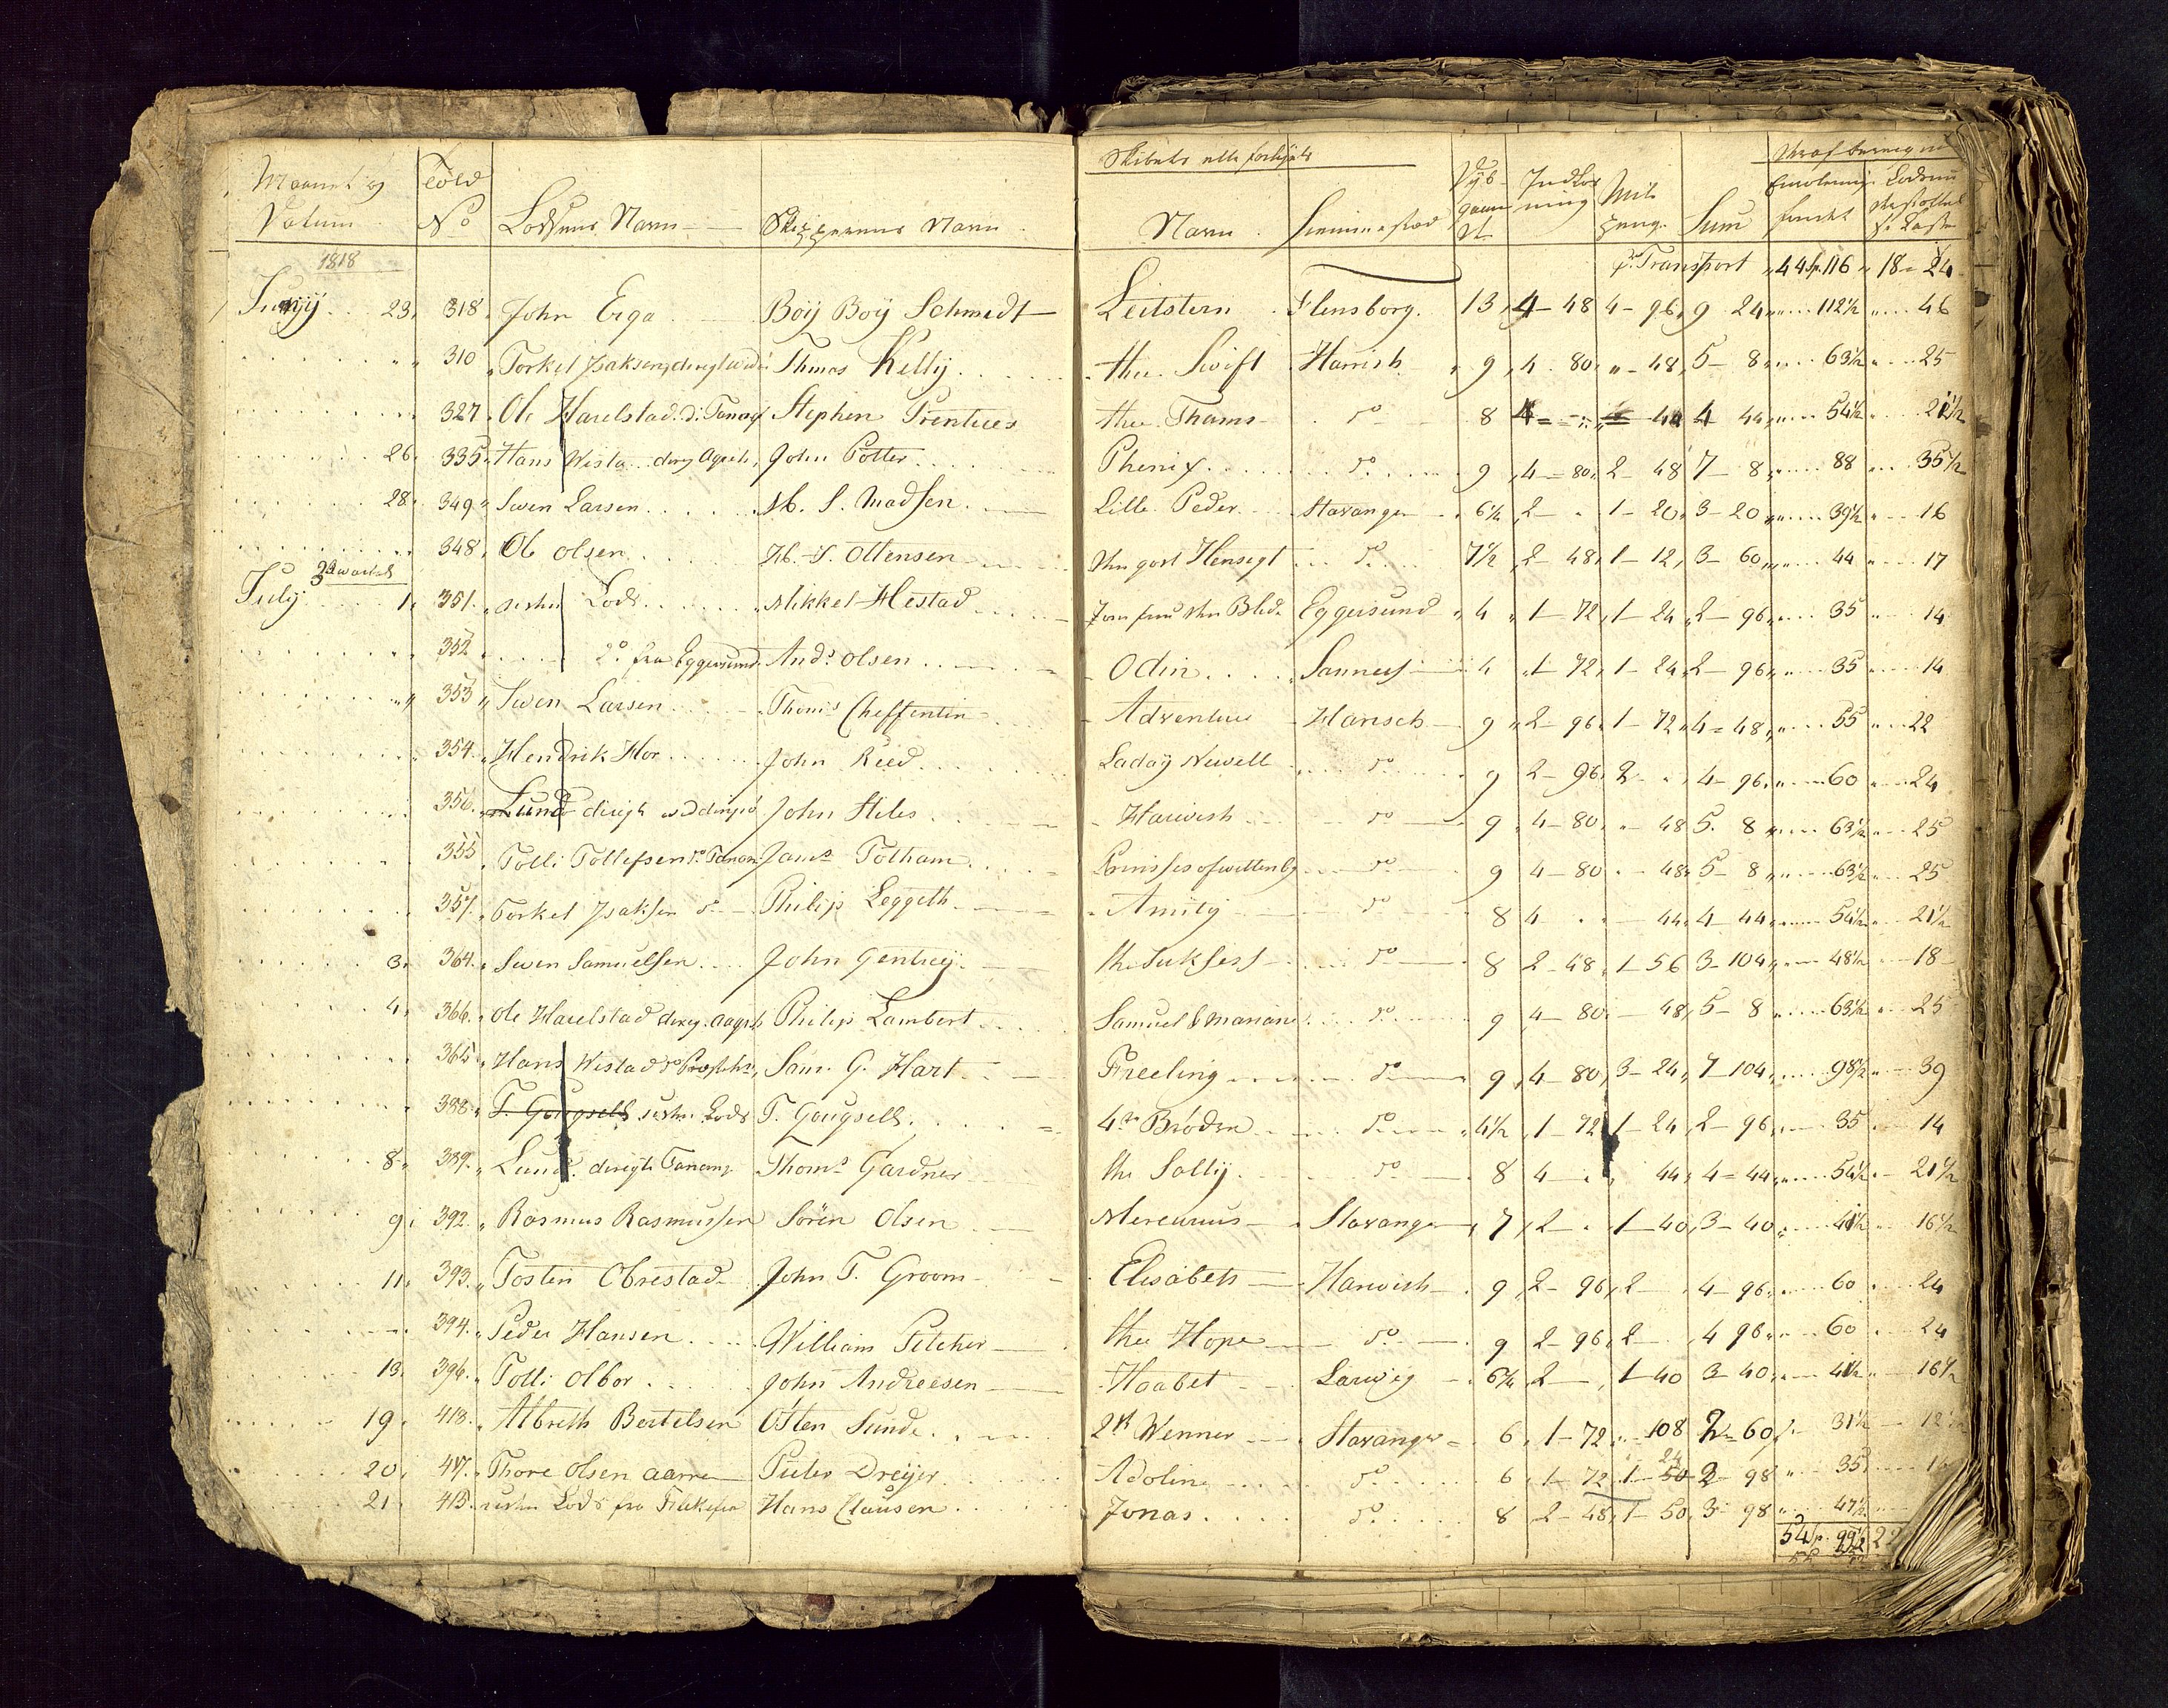 Maanet og Datum | Told No | Lodsens Navn | Skipperens Navn | Skibets eller fartøjets Navn | Hiemmestæd | Dyb gaaende | Indlosning | Sum
1818 | p. Transport 44 Sp. 116 18 - 24
Junij 23. 318. John Erga Boij Boij Schmidt Leitstern Flensborg. 13 4 - 48 4 - 96 9 24 112½ 46
310 Torkel Isaksen Thmas Kellij the Swift Harrish 9 4 80 " - 48 5 - 8 63½ 25
327. Ole Harelstad. d: Tanang Stephen Prentices the Thams do 8 4 44 4 44 54½ 21½
26. 335. Hans Wista John Potter Phenix do 9 4 = 80 2 - 48 7 - 8 88 35½
28. 349 Swen Larsen M. S. Madsen Lille Peder Stavanger 6½ 2 - 1 - 20 3 - 20 39½ 16
348. Ole Olsen H. S. Ottensen Hensigt do 7½ 2 - 48 1 - 12 3 - 60 44 17
July 1. 351. Lods Mikkel Hestad Eggersund 4 1 - 72 1 - 24 2 - 96 35 14
352 do fra Eggersund Ands Olsen Odin Sannes 4 1 - 72 1 - 24 2 - 96 35 14
353 Swen Larsen Thoms Cheffentin Adventure Harisch 9 2 - 96 1 - 72 4 = 48 55 22
354. Hendrik Hor John Reed Laday Newell do 9 2 - 96 2 4 - 96 60 24
356. Lund John Stiles Harwish do 9 4 - 80 48 5. 8 63½ 25
355 Tolli Tollefsen do Tanan Jams Totham Prinsses of wittenbg do 9 4 - 80 48 5 - 8 63½ 25
357. Torkel Isaksen do Philip Leggeth Amity do 8 4 44 4 44 54½ 21½
3. 364. Swen Samuelsen John Gentrey the Suksess do 8 2 - 48 1 - 56 3 - 104 48½ 18
4. 366. Ole Harelstad Philip Lambert Samuel & Mariane do 9 4 - 80 48 5 - 8 63½ 25
365 Hans Wistad Sam. G. Hart Freeling do 9 4 - 80 3 - 24 7 104 98½ 39
388. T. Gougsell Lods T. Gougsell. 4re Brødre do 4½ 1 - 72 1 - 24 2 - 96 35 14
8 389. Lund. Thoms Gardner the Sally do 8 4 44 4 = 44 54½ 21½
9. 392. Rasmus Rasmussen Sören Olsen Mercurius Stavanger 7 2 1 - 40 3 - 40 41½ 16½
11. 393. Tosten Obrestad John T. Groom Elisabeth Harwich 9 2 - 96 2 4 - 96 60 24
394. Peder Hansen William Pilcher the Hope do 9 2 - 96 2 4 96 60 24
13. 396. Tolli Olbor John Andreesen Haabet Larwig 6¾ 2 1 - 40 3 - 40 41½ 16½
19. 418. Albreth Bertelsen Østen Sunde 2de Wenner Stavanger 6 1 - 72 108 2 - 60 31½
20. 417. Thore Olsen aarre Pieter Dreijer Adoline do 6 1 - 72 1 - 50 24 2 98 35
21 415 Lods fra Flekefior Hans Clausen Jonas do 8 2 - 48 1 - 50 3 - 98 47½
54 Sp. 99½ 22